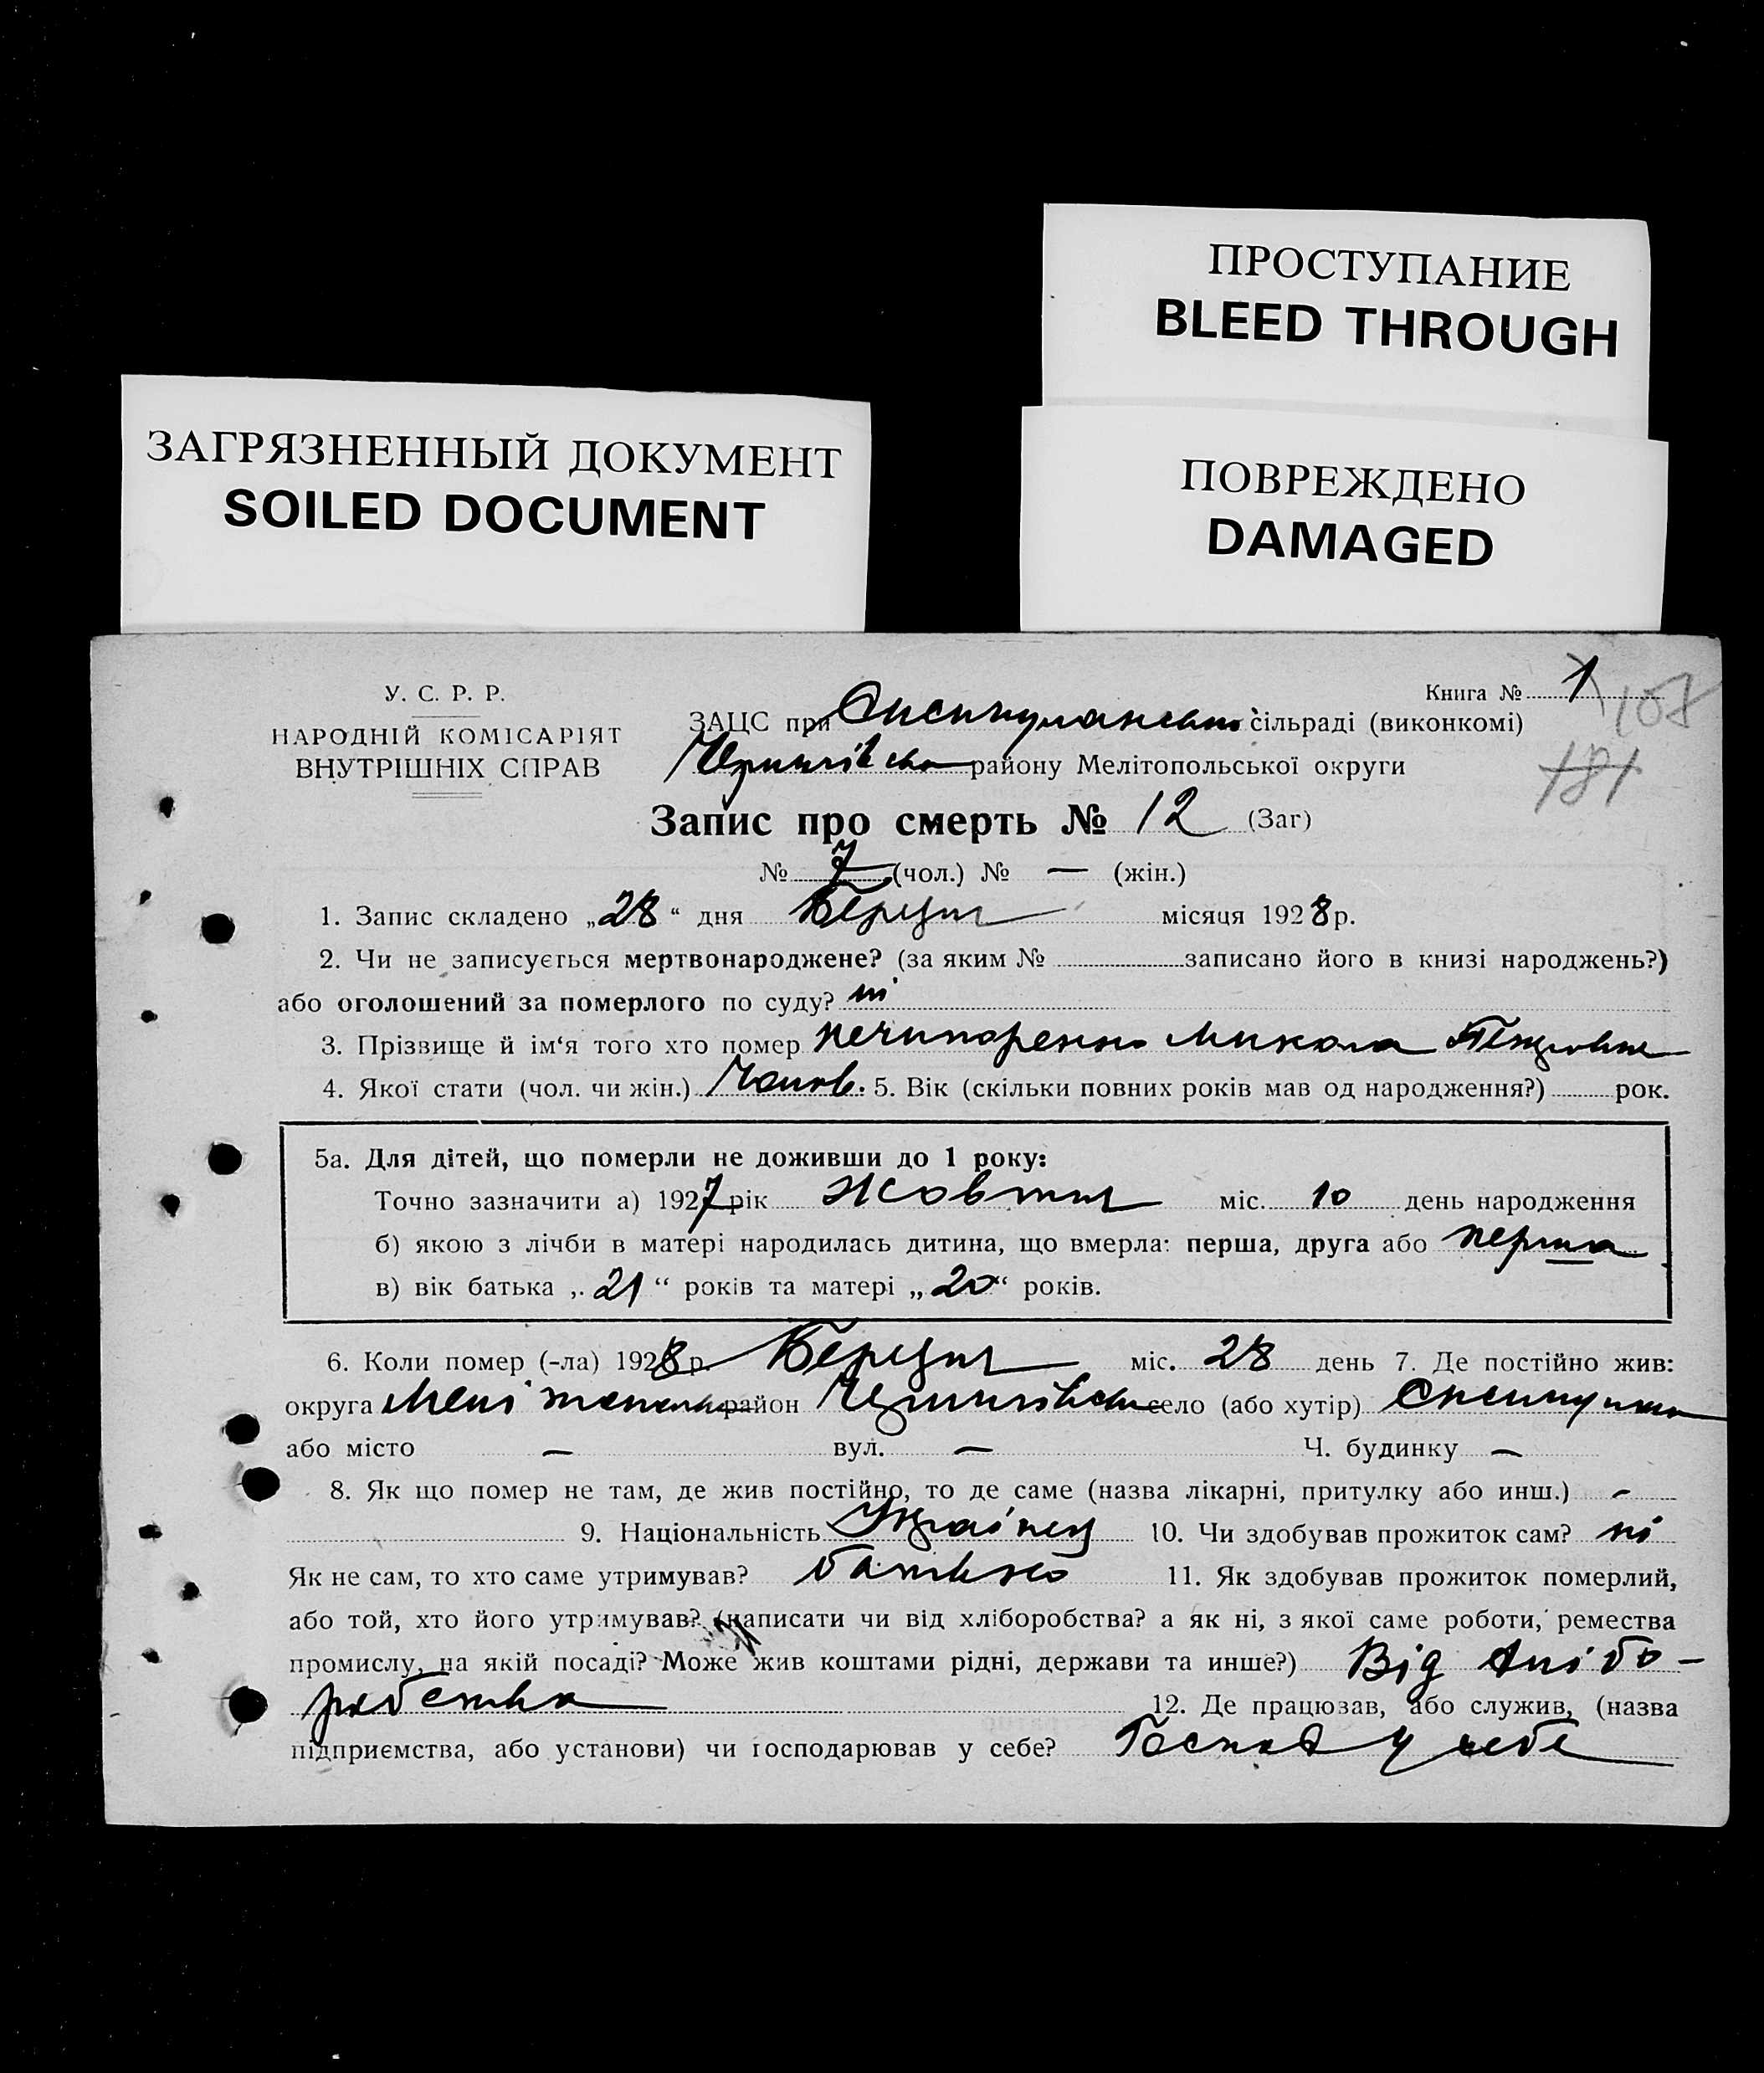 ПРОСТУПАНИЕ
BLEED THROUGH
ЗАГРЯЗНЕННЫЙ ДОКУМЕНТ
SOILED DOCUMENT
ПОВРЕЖДЕНО
DAMAGED
У. С. Р. Р.
НАРОДНІЙ КОМІСАРІЯТ
ВНУТРІШНІХ СПРАВ
Книга № 1
108
181
ЗАЦС при сільраді (виконкомі)
району Мелітопольської округи
Запис про смерть № 12 (Заг)
№ 7 (чол.) № — (жін.)
1. Запис складено „28“ дня Березня місяця 1928 р.
2. Чи не записується мертвонароджене? (за яким № записано його в книзі народжень?)
або оголошений за померлого по суду? ні
3. Прізвище й ім‘я того хто помер Нечипоренко Микола Петрович
4. Якої стати (чол. чи жін.) Чолов. 5. Вік (скільки повних років мав од народження?) рок.
5а. Для дітей, що померли не доживши до 1 року:
Точно зазначити а) 1927 рік Жовтня міс. 10 день народження
б) якою з лічби в матері народилась дитина, що вмерла: перша, друга або перша
в) вік батька „21“ років та матері „20“ років.
6. Коли помер (-ла) 1928 р. Березня міс. 28 день 7. Де постійно жив:
округа район село (або хутір)
або місто — вул. — Ч. будинку —
8. Як що помер не там, де жив постійно, то де саме (назва лікарні, притулку або инш.) -
9. Національність Українец 10. Чи здобував прожиток сам? ні
Як не сам, то хто саме утримував? батько 11. Як здобував прожиток померлий,
або той, хто його утримував? (написати чи від хліборобства? а як ні, з якої саме роботи, ремества
промислу, на якій посаді? Може жив коштами рідні, держави та инше?) Від хлібо-
робства 12. Де працював, або служив, (назва
підприємства, або установи) чи господарював у себе? Господ у себе